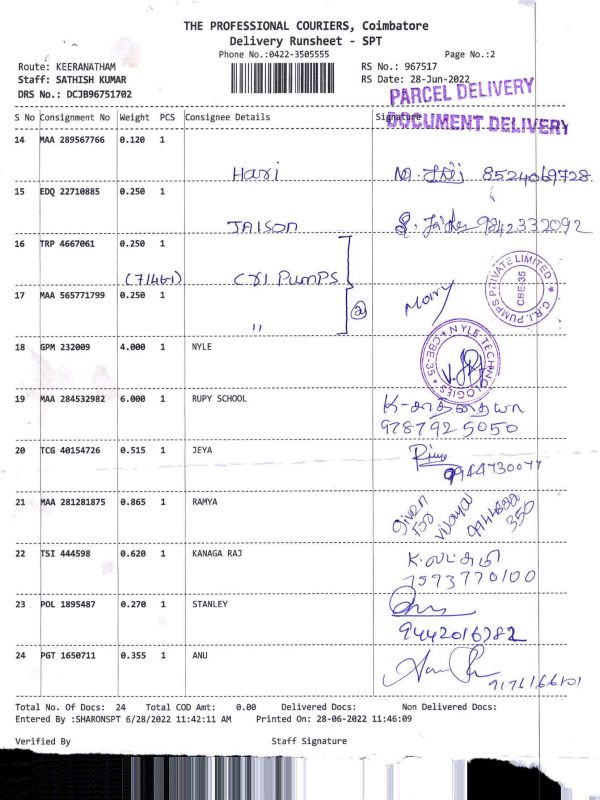 THE PROFESSIONAL COURIERS, Coimbatore
Delivery Runsheet - SPT
Phone No.:0422-3505555 Page No.:2
Route: KEERANATHAM RS No.: 967517
Staff: SATHISH KUMAR RS Date: 28-Jun-2022
DRS No.: DCJB96751702
PARCEL DELIVERY
DOCUMENT DELIVERY
S No Consignment No Weight PCS Consignee Details Signature
14 MAA 289567766 0.120 1
Hari 8524069728
15 EDQ 22710885 0.250 1
JAISON 9842332092
16 TRP 4667061 0.250 1
(71461) CRI PUMPS
C.R.I. PUMPS PRIVATE LIMITED CBE-35
17 MAA 565771799 0.250 1
"
18 GPM 232009 4.000 1 NYLE
NYLE TECHNOLOGIES CBE-35
19 MAA 284532982 6.000 1 RUPY SCHOOL
9787925050
20 TCG 40154726 0.515 1 JEYA
21 MAA 281281875 0.865 1 RAMYA
Given
350
22 TSI 444598 0.620 1 KANAGA RAJ
7593770100
23 POL 1895487 0.270 1 STANLEY
24 PGT 1650711 0.355 1 ANU
Total No. Of Docs: 24 Total COD Amt: 0.00 Delivered Docs: Non Delivered Docs:
Entered By :SHARONSPT 6/28/2022 11:42:11 AM Printed On: 28-06-2022 11:46:09
Verified By Staff Signature